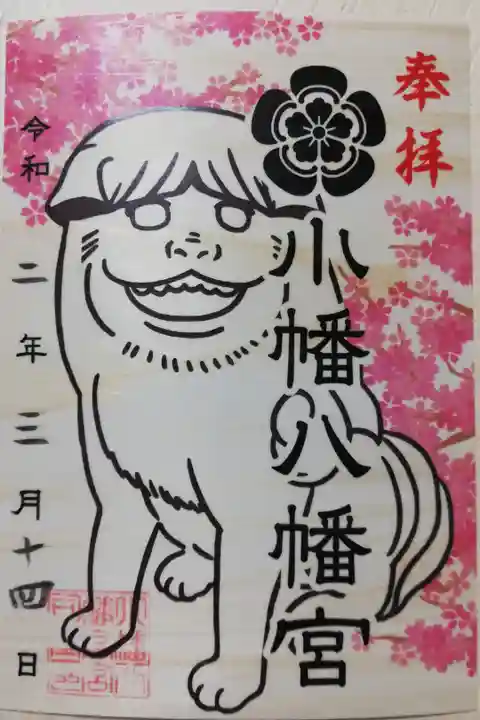 奉拝
小幡八幡宮
令和二年三月十四日